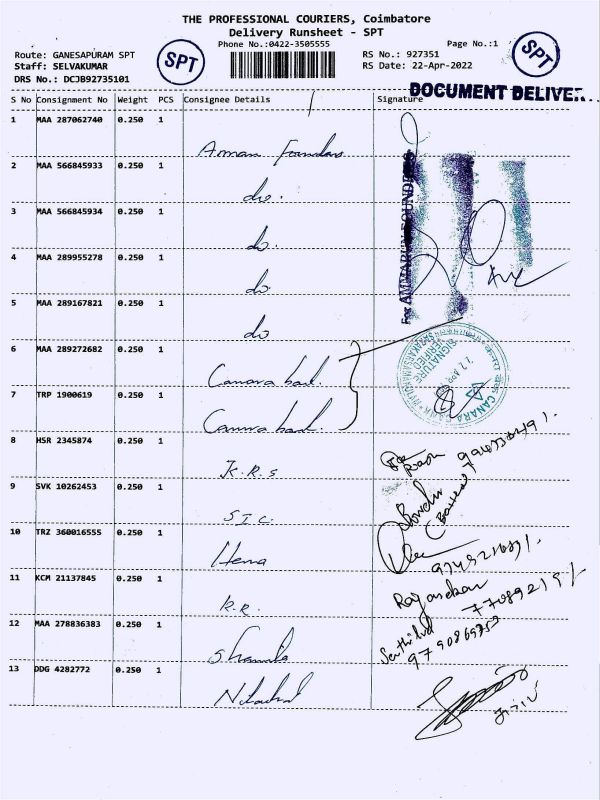 THE PROFESSIONAL COURIERS, Coimbatore
Delivery Runsheet - SPT
Phone No.:0422-3505555
Page No.:1
Route: GANESAPURAM SPT
SPT
RS No.: 927351
SPT
Staff: SELVAKUMAR
RS Date: 22-Apr-2022
DRS No.: DCJB92735101
DOCUMENT DELIVER..
S No Consignment No Weight PCS Consignee Details Signature
1 MAA 287062740 0.250 1
Amman Founders
2 MAA 566845933 0.250 1
do.
3 MAA 566845934 0.250 1
do.
4 MAA 289955278 0.250 1
do
5 MAA 289167821 0.250 1
do
For AMMARUN FOUNDRIES
6 MAA 289272682 0.250 1
Canara bank.
SIGNATURE VERIFIED
CANARA
7 TRP 1900619 0.250 1
Canara bank.
8 HSR 2345874 0.250 1
K.R.S
9 SVK 10262453 0.250 1
S I C.
10 TRZ 360016555 0.250 1
Hema
11 KCM 21137845 0.250 1
K.R.
12 MAA 278836383 0.250 1
Shamala
13 DDG 4282772 0.250 1